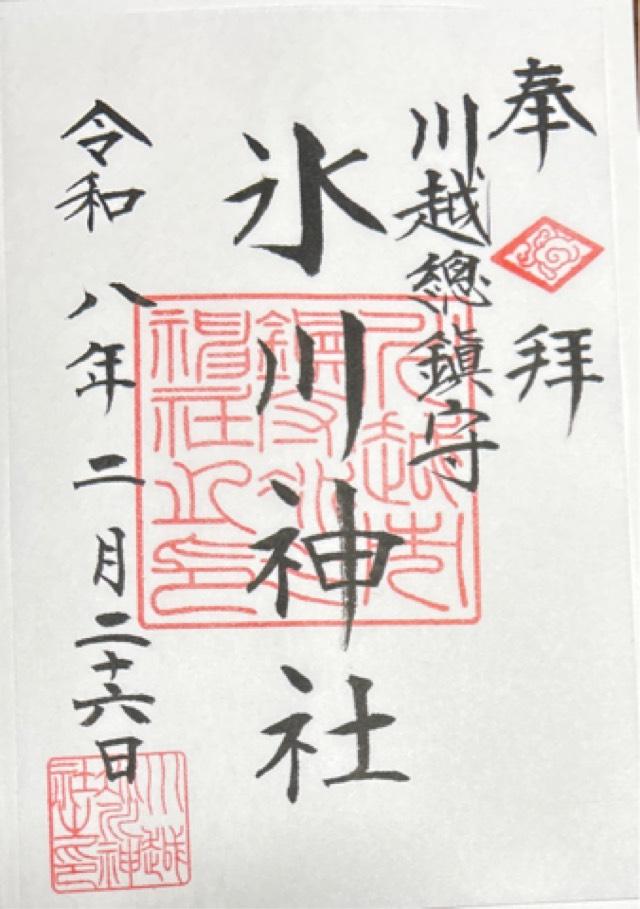 奉拝
川越總鎮守
氷川神社
令和八年二月二十六日
川越氷川神社之印